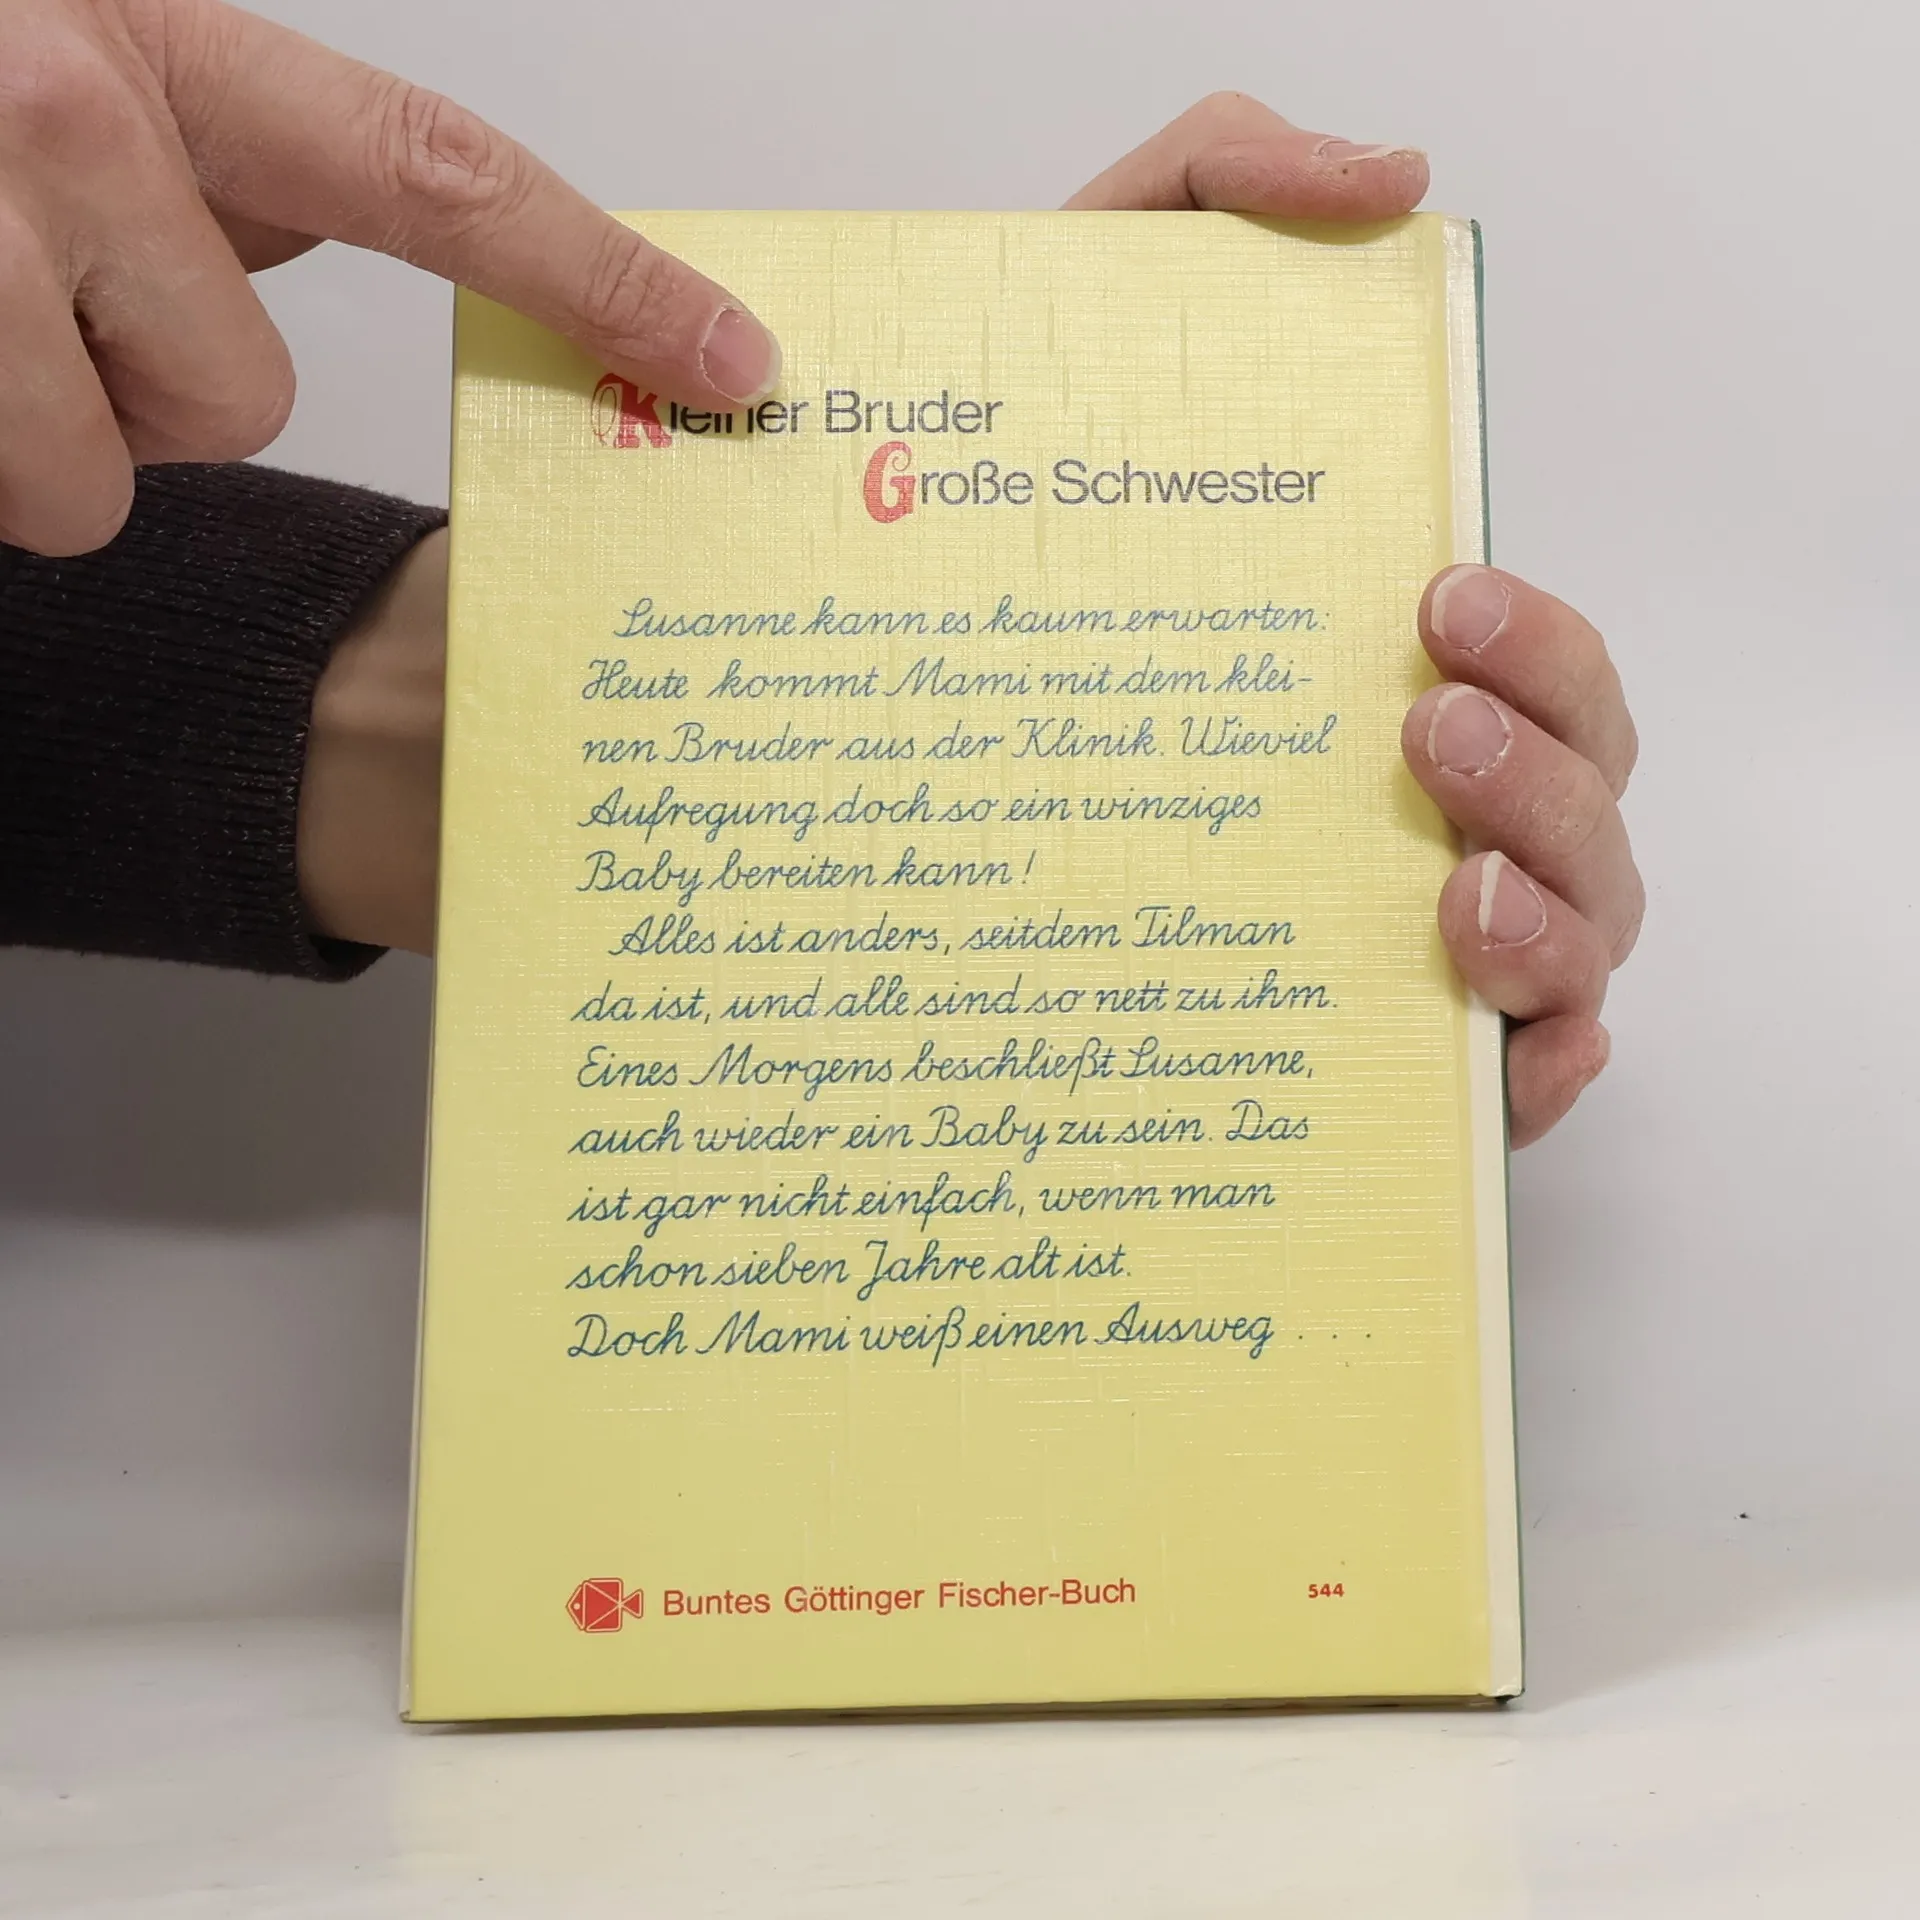 Kleiner Bruder
Große Schwester
Susanne kann es kaum erwarten:
Heute kommt Mami mit dem klei-
nen Bruder aus der Klinik. Wieviel
Aufregung doch so ein winziges
Baby bereiten kann!
Alles ist anders, seitdem Tilman
da ist, und alle sind so nett zu ihm.
Eines Morgens beschließt Susanne,
auch wieder ein Baby zu sein. Das
ist gar nicht einfach, wenn man
schon sieben Jahre alt ist.
Doch Mami weiß einen Ausweg . . .
Buntes Göttinger Fischer-Buch 544